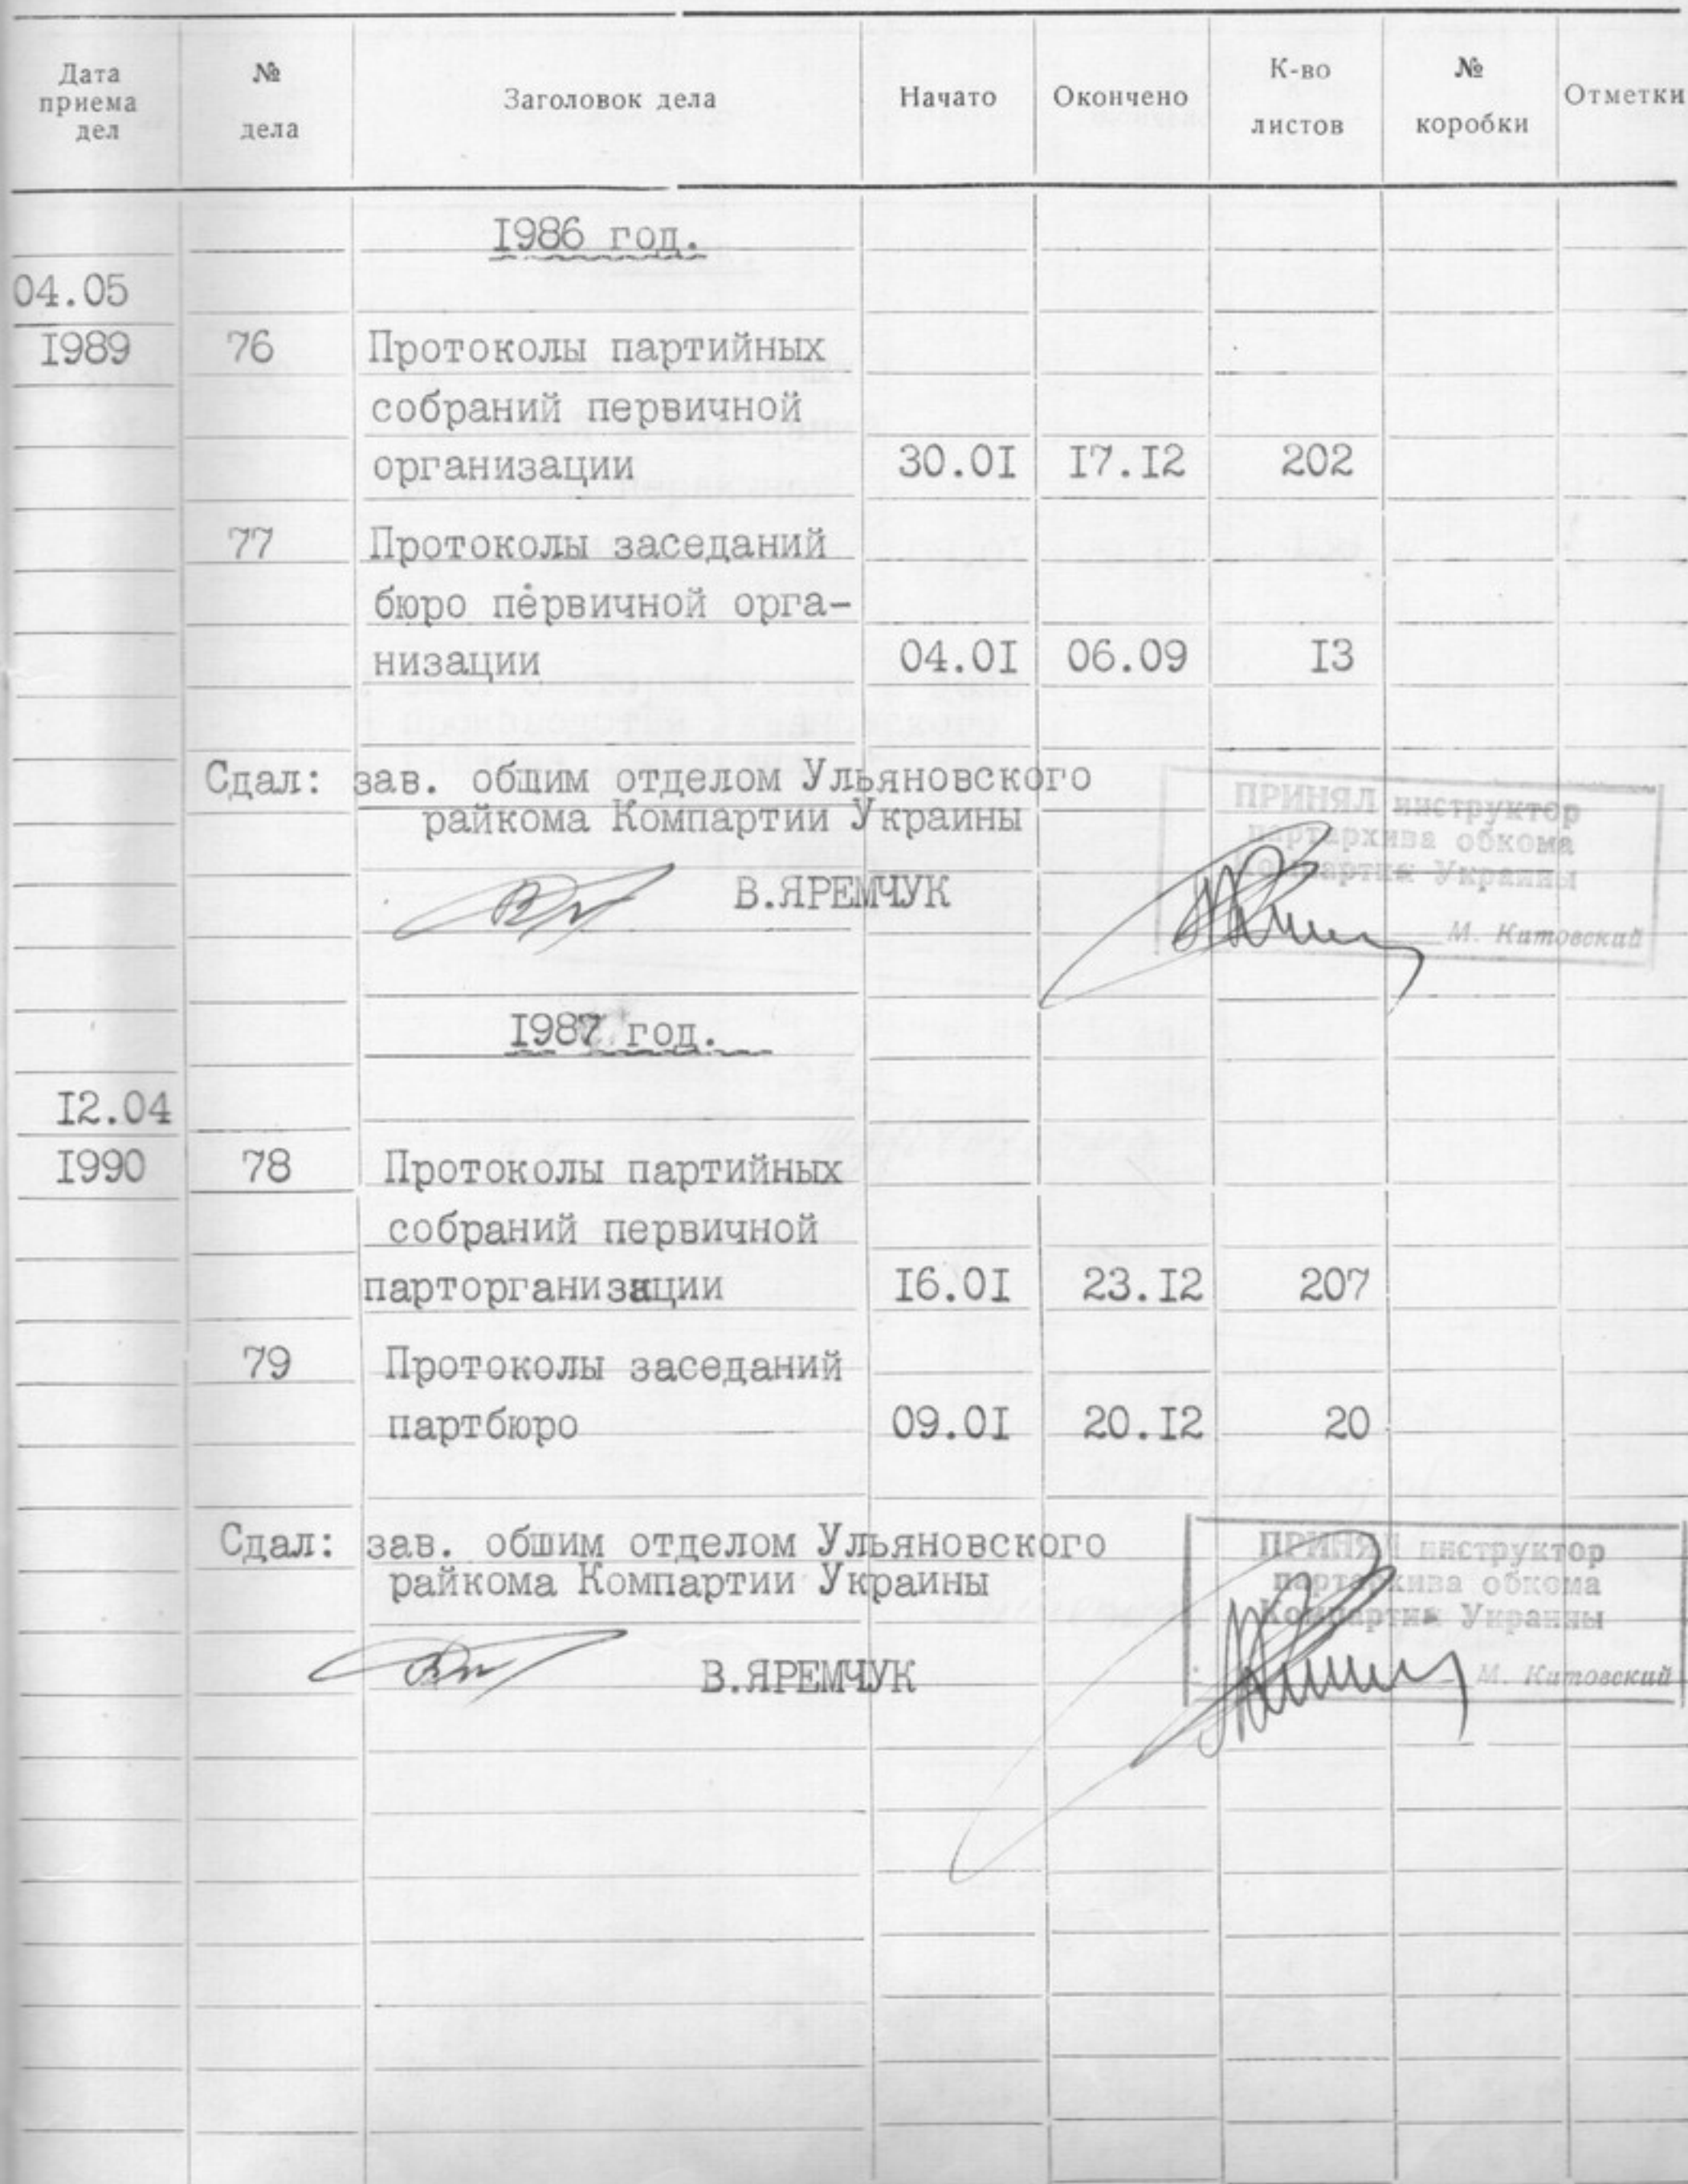 Дата приема дел
№ дела
Заголовок дела
Начато
Окончено
К-во листов
№ коробки
Отметки
I986 год.
04.05
I989 76 Протоколы партийных
собраний первичной
организации 30.0I I7.I2 202
77 Протоколы заседаний
бюро первичной орга-
низации 04.0I 06.09 I3
Сдал: зав. обшим отделом Ульяновского
райкома Компартии Украины
В.ЯРЕМЧУК
ПРИНЯЛ инструктор
партархива обкома
Компартии Украины
М. Китовский
I987 год.
I2.04
I990 78 Протоколы партийных
собраний первичной
парторганизации I6.0I 23.I2 207
79 Протоколы заседаний
партбюро 09.0I 20.I2 20
Сдал: зав. обшим отделом Ульяновского
райкома Компартии Украины
В.ЯРЕМЧУК
ПРИНЯЛ инструктор
партархива обкома
Компартии Украины
М. Китовский